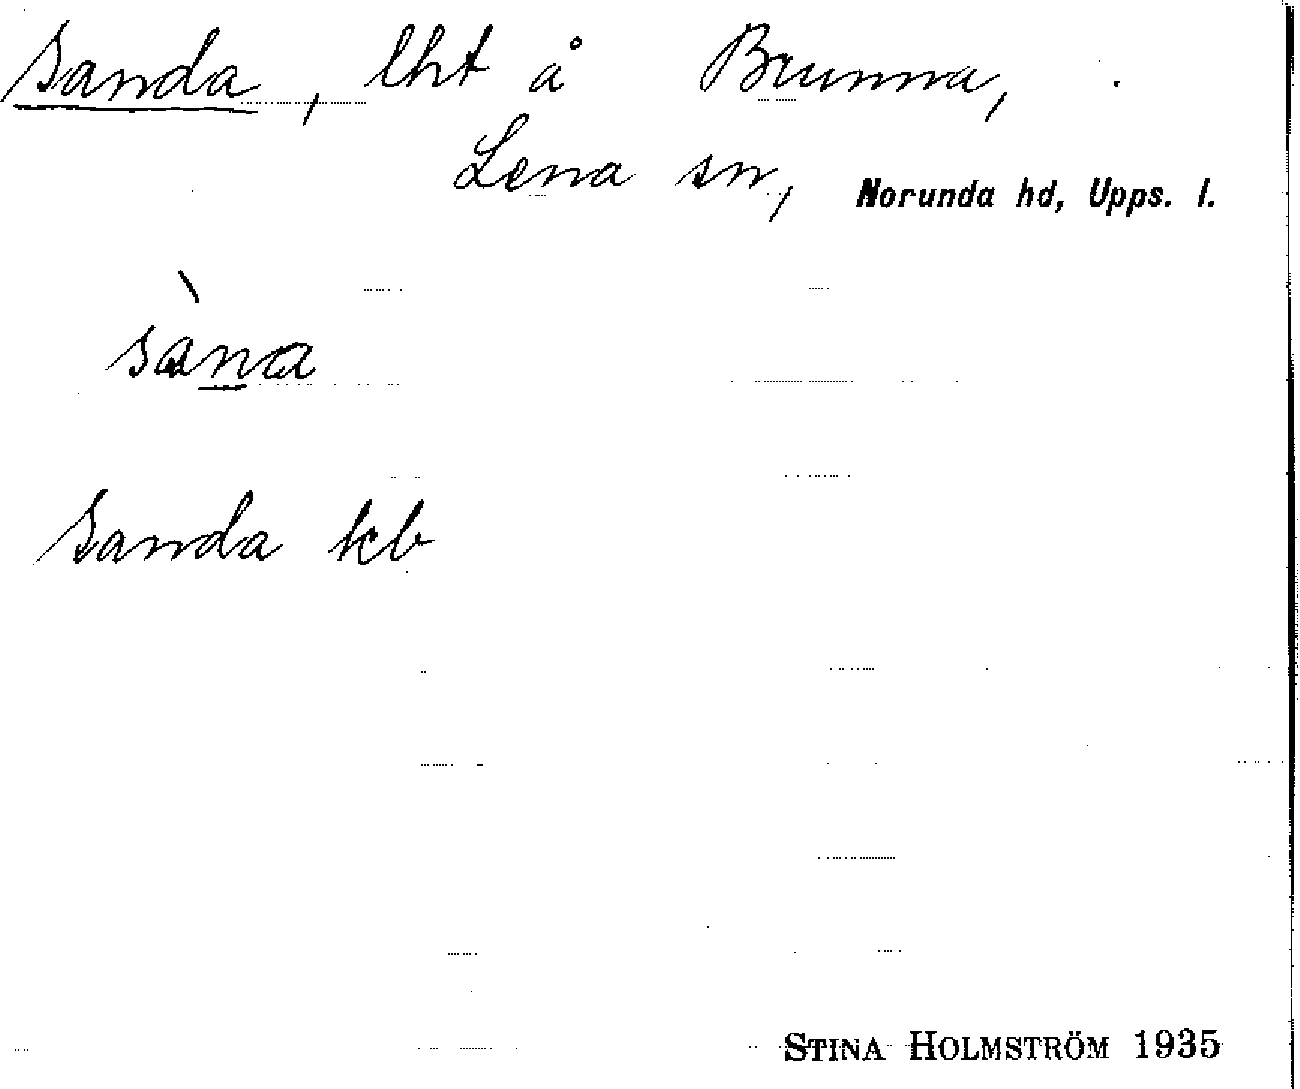 Sanda, lht å Brunna,
Lena sn, Norunda hd, Upps. l.
sàna
Sanda kb
STINA HOLMSTRÖM 1935